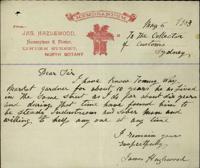 MEMORANDUM
FROM
JAS. HAZLEWOOD,
NORTH BOTANY
May 5 1903
To the Collector
of Customs
Sydney
Dear Sir
I have known Tommy Way
Market gardner for about 10 years as he lived
in the same street as I do for about six years
and during that time have found him to
be steady Industrious and sober man and
willing to help any one at any time
I remain yours
Respectfully
James Hazlewood